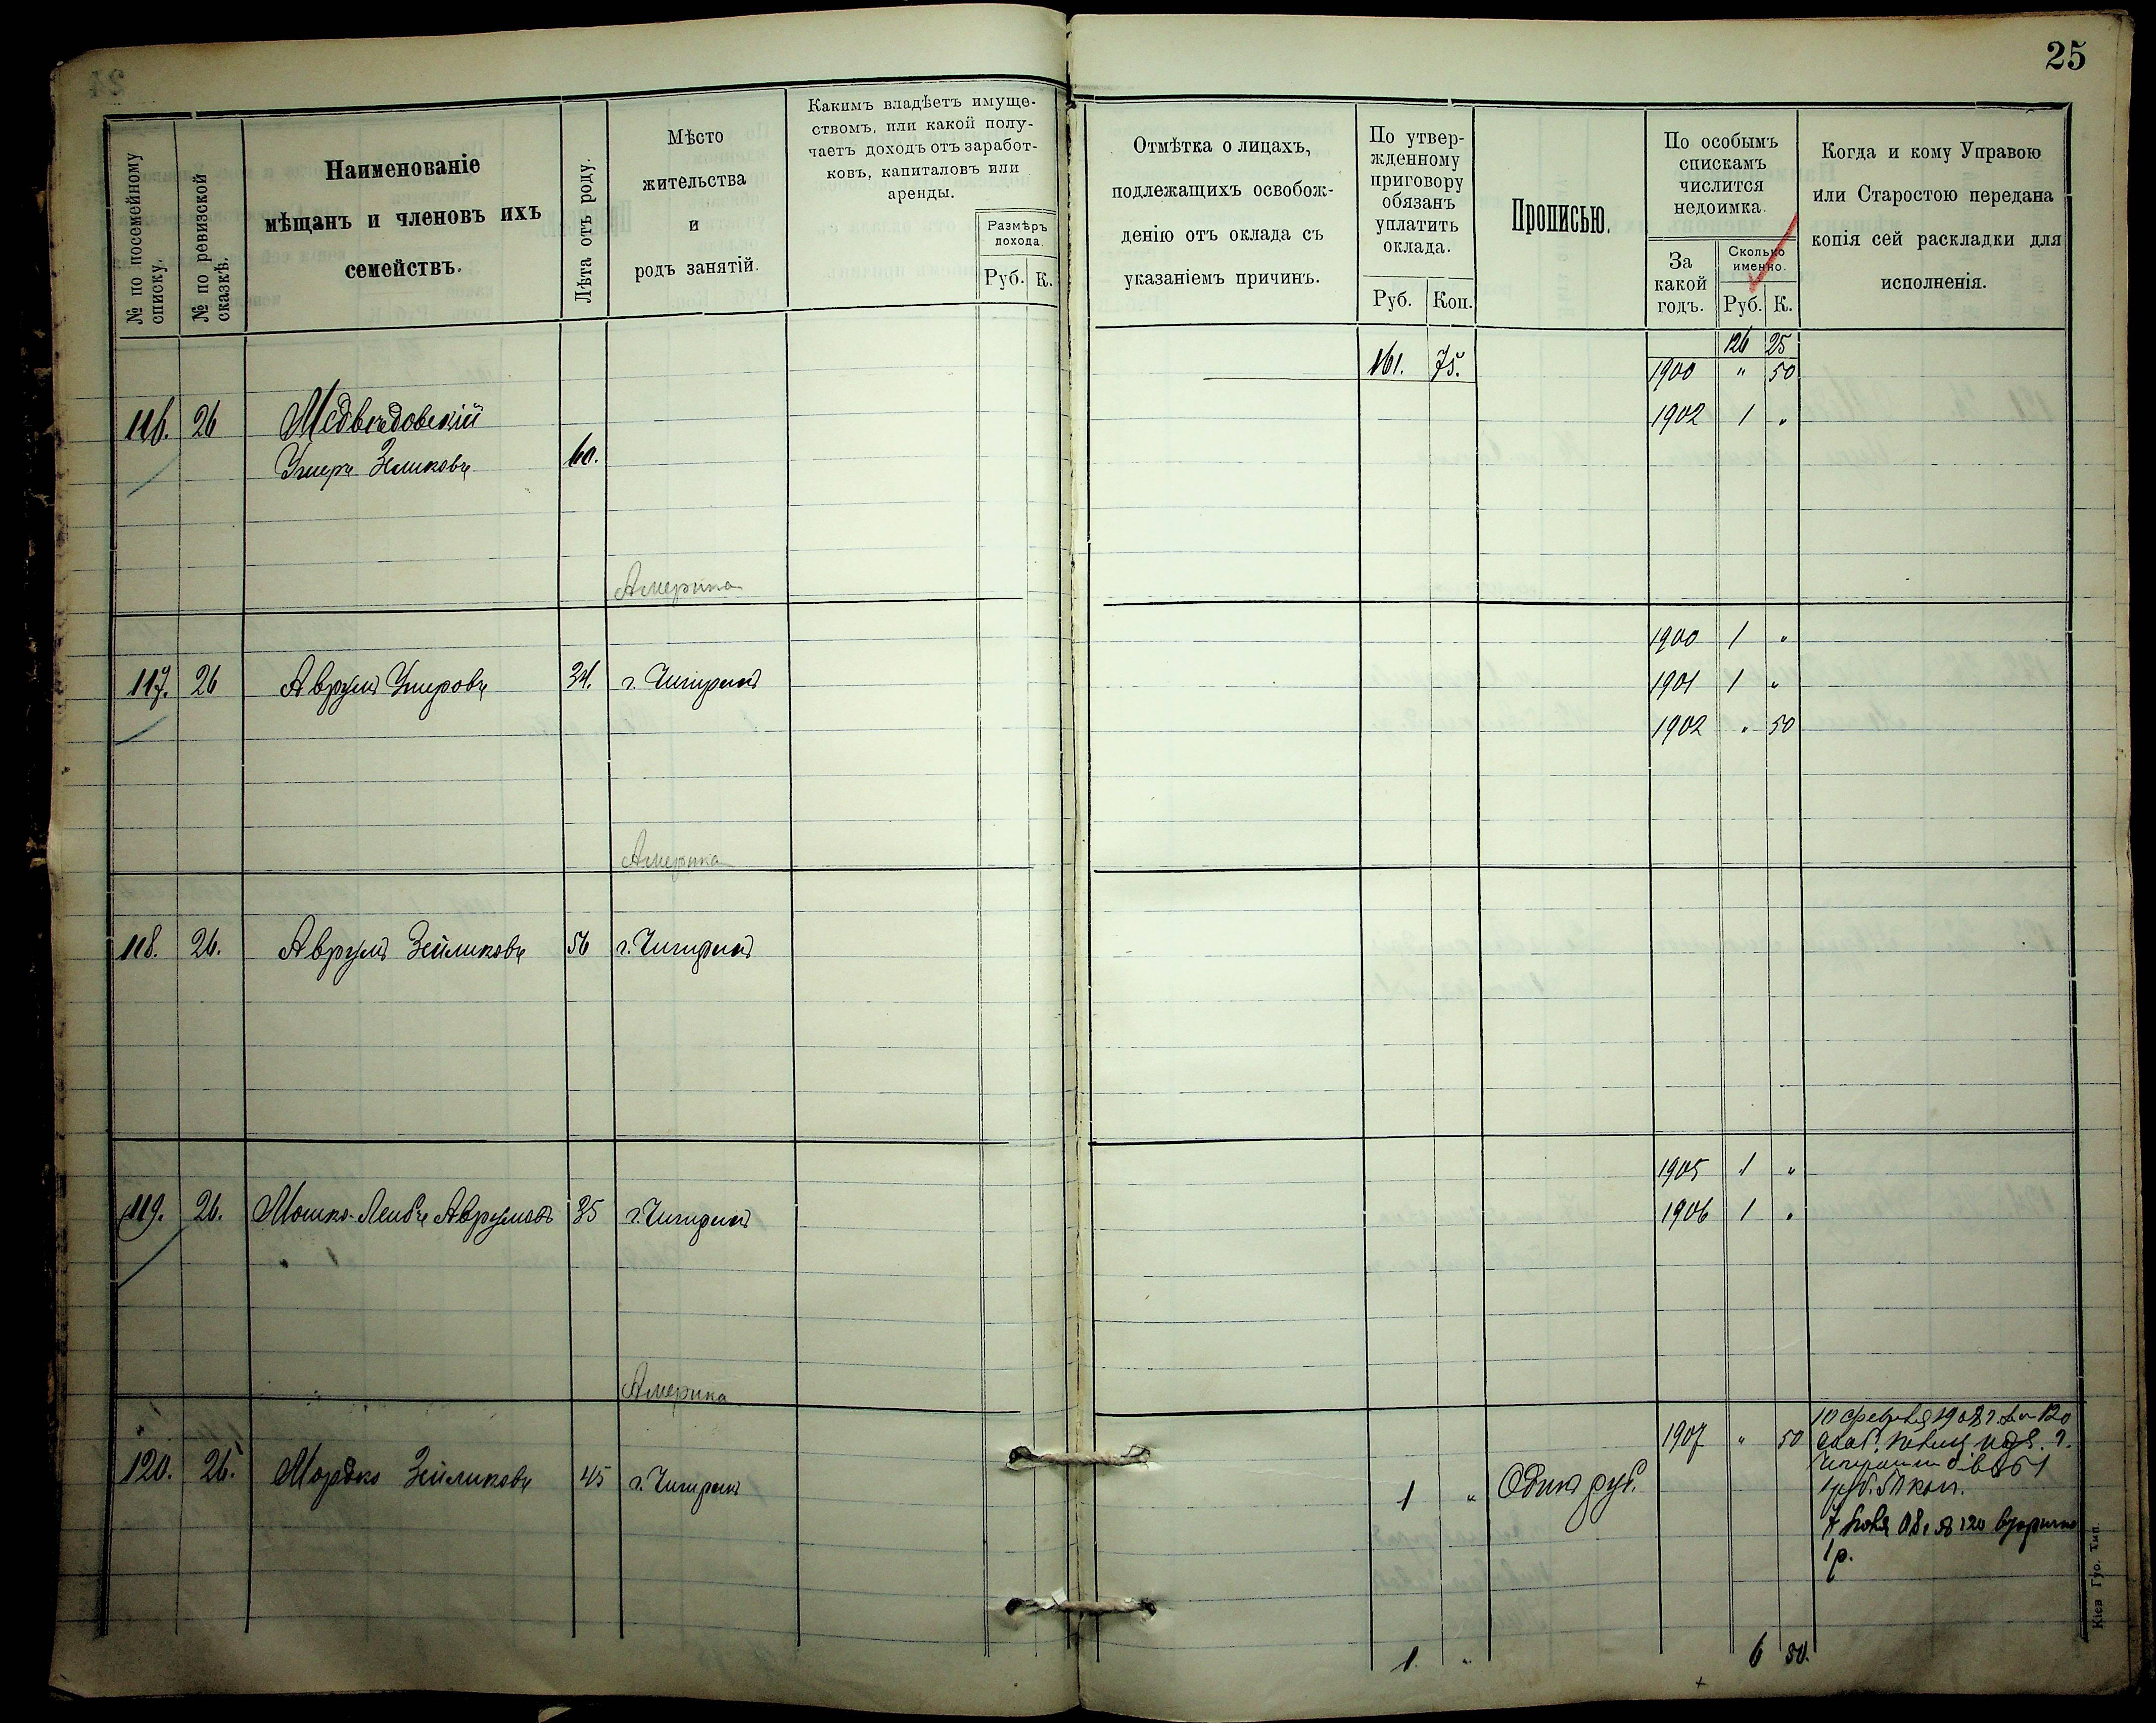 25
№ по посемейному
списку.
№ по ревизской
сказкѣ.
Наименованіе
мѣщанъ и членовъ ихъ
семействъ.
Лѣта отъ роду.
Мѣсто
жительства
и
родъ занятій.
Какимъ владѣетъ имуще-
ствомъ, или какой полу-
чаетъ доходъ отъ заработ-
ковъ, капиталовъ или
аренды.
Размѣръ
дохода.
Руб. К.
Отмѣтка о лицахъ,
подлежащихъ освобож-
денію отъ оклада съ
указаніемъ причинъ.
По утвер-
жденному
приговору
обязанъ
уплатить
оклада.
Руб. Коп.
Прописью.
По особымъ
спискамъ
числится
недоимка.
За
какой
годъ.
Сколько
именно.
Руб. К.
Когда и кому Управою
или Старостою передана
копія сей раскладки для
исполненія.
161. 75. 126 25
1900 " 50
116. 26 Медвѣдовскій 1902 1 "
60.
Америка
1900 1 "
117. 26 Аврумъ 34. г. Чигиринъ 1901 1 "
1902 " 50
Америка
118. 26. Аврумъ Зейликовъ 56 г. Чигиринъ
1905 1 "
119. 26. Мошко-Лейбъ Аврумовъ 35 г. Чигиринъ 1906 1 "
Америка
1907 " 50
120. 26. Мордко Зейликовъ 45 г. Чигиринъ 1 " Одинъ руб.
1 руб. 50 коп.
1 р.
1. " 6 50.
Кіев. Губ. Тип.